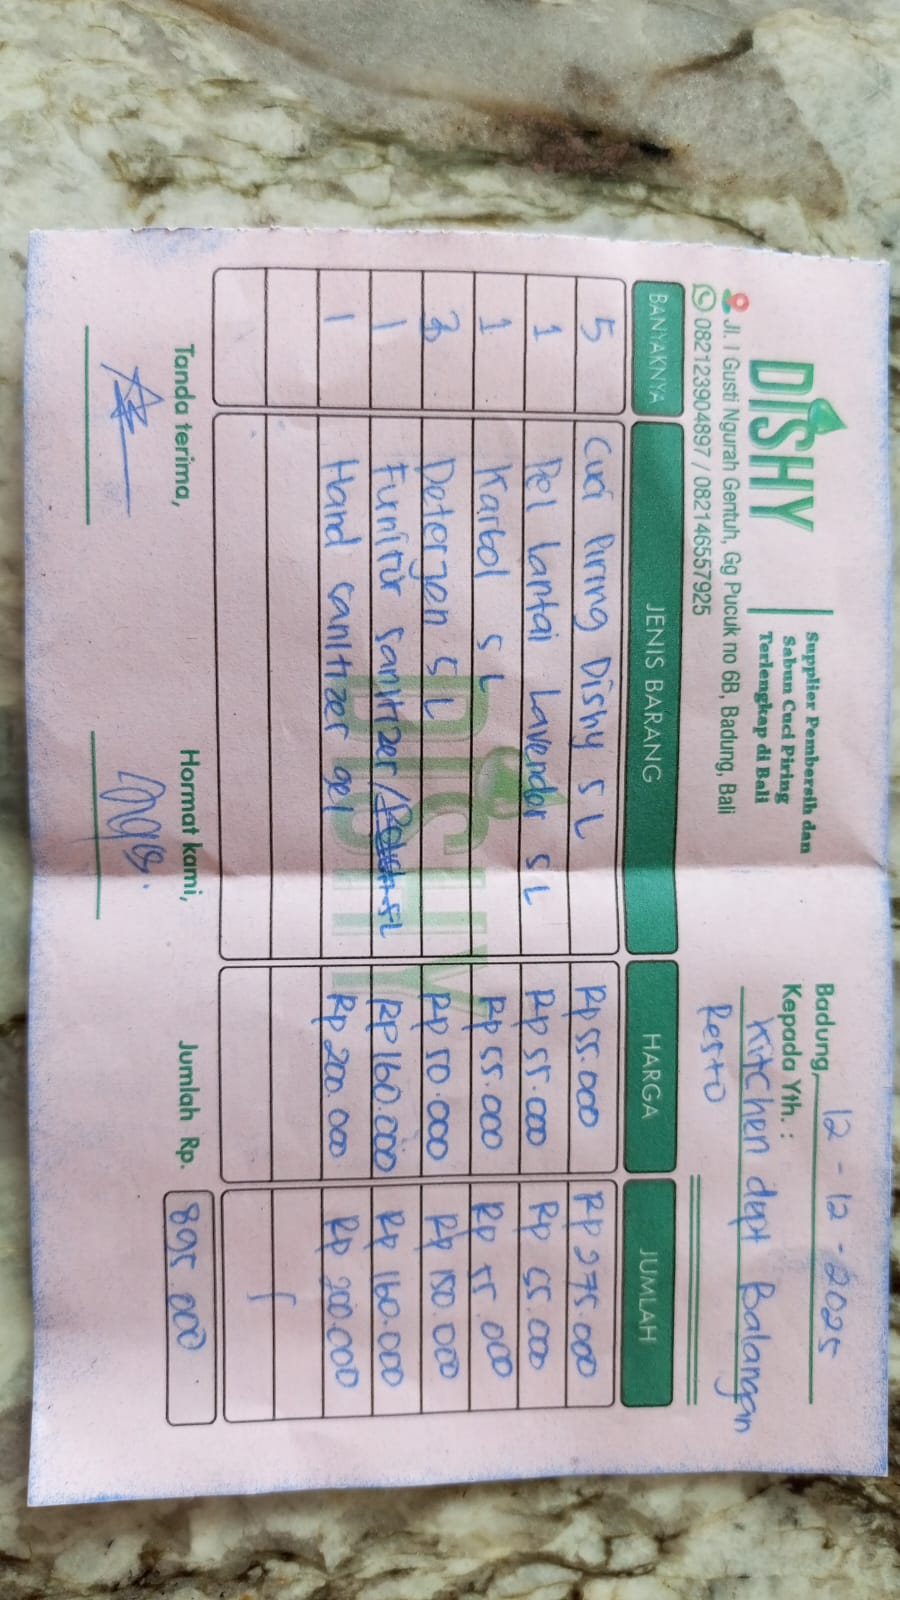 DISHY
Supplier Pembersih dan
Sabun Cuci Piring
Terlengkap di Bali
Jl. I Gusti Ngurah Gentuh, Gg Pucuk no 6B, Badung, Bali
082123904897 / 082146557925
Badung, 12 - 12 - 2025
Kepada Yth. :
Kitchen dept Balangan
Resto
BANYAKNYA JENIS BARANG HARGA JUMLAH
5 Cuci Piring Dishy 5 L Rp 55.000 Rp 275.000
1 Pel lantai Lavender 5 L Rp 55.000 Rp 55.000
1 Karbol 5 L Rp 55.000 Rp 55.000
3 Deterjen 5 L Rp 50.000 Rp 150.000
1 Furnitur sanitizer / 5L Rp 160.000 Rp 160.000
1 Hand sanitizer gel Rp 200.000 Rp 200.000
DISHY
Tanda terima, Hormat kami, Jumlah Rp. 895.000